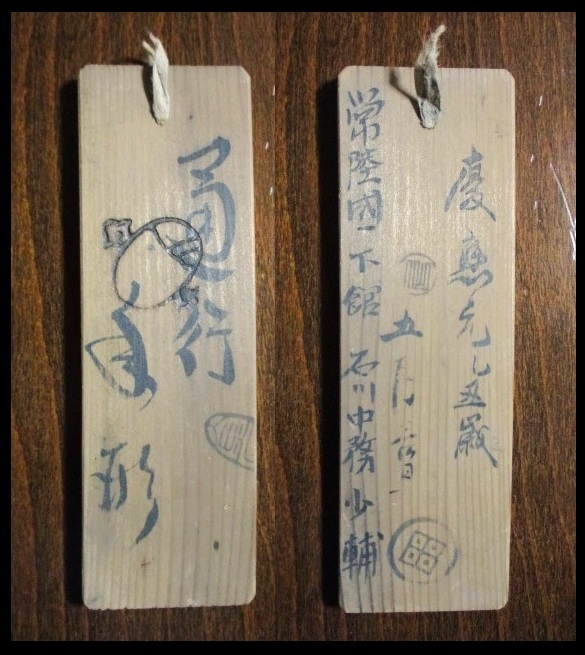 通行
手形
慶應元乙丑歳
五月吉日
常陸國下館 石川中務少輔